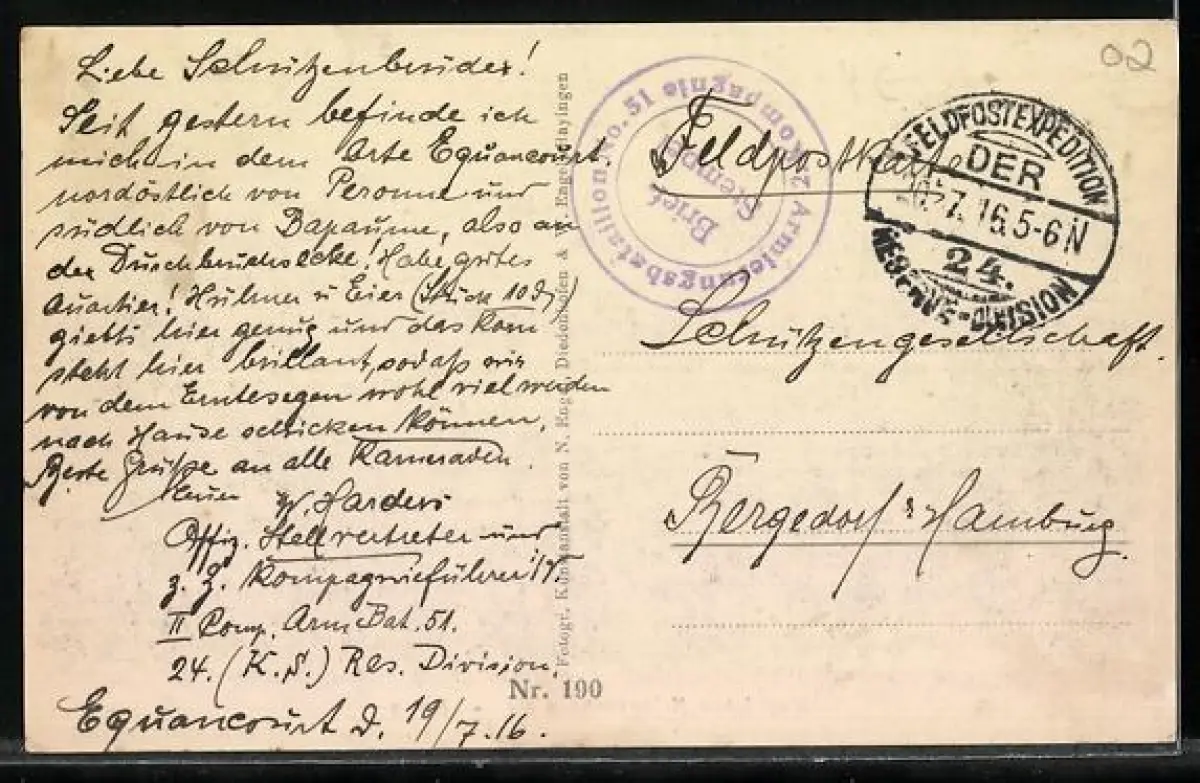 Liebe Schützenbrüder!
Seit gestern befinde ich
mich in dem Orte Equancourt.
nordöstlich von Peronne und
südlich von Bapaume, also an
der Durchbruchsecke! Habe gutes
Quartier! Hühner u Eier (Stück 10 Pf)
giebts hier genug und das Korn
steht hier brillant, sodaß wir
von dem Erntesegen wohl viel werden
nach Hause schicken können.
Beste Grüße an alle Kameraden.
W. Harders
Offiz. Stellvertreter und
z. Z. Kompagnieführer
II Comp. Arm. Bat. 51.
24. (K.S.) Res. Division.
Equancourt d. 19/7.16.
Fotogr. Kunstanstalt von N. Engel, Diedenhofen &
Nr. 190
Armierungsbataillon No. 51
2. Kompagnie
Brief
Stempel
Feldpostkarte
FELDPOSTEXPEDITION
DER
7.16.5-6N
24.
RESERVE-DIVISION
02
Schützengesellschaft.
Bergedorf b Hamburg.